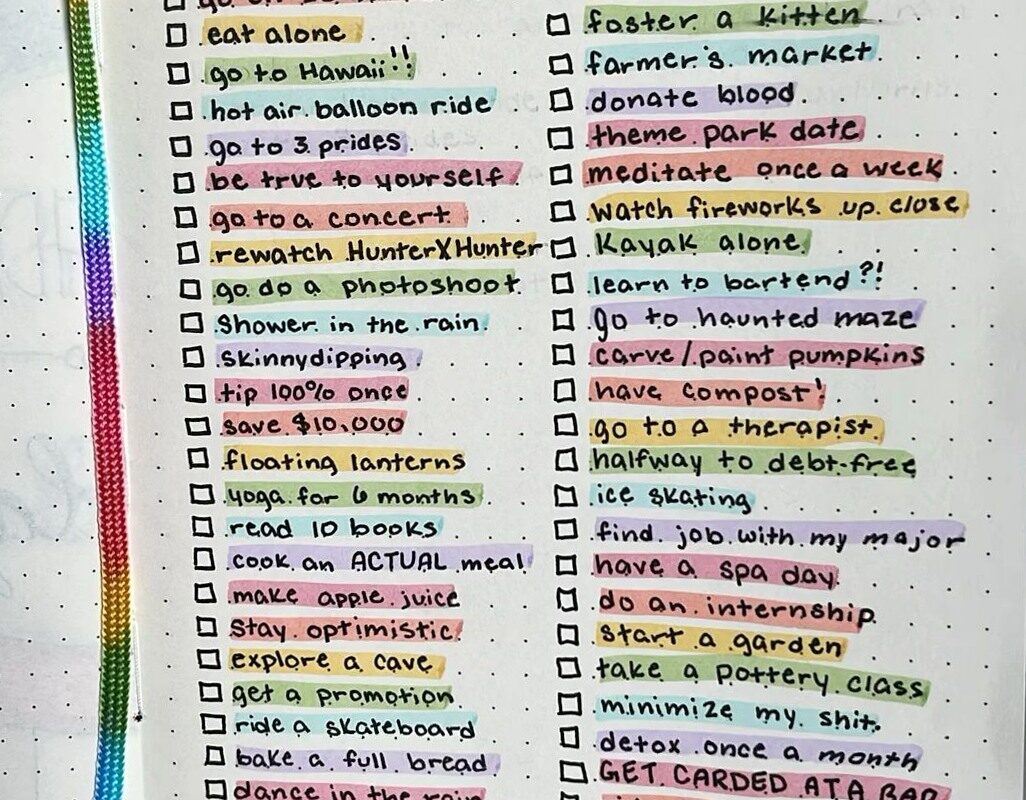 eat alone
go to Hawaii!!
hot air balloon ride
go to 3 prides
be true to yourself
go to a concert
rewatch HunterXHunter
go do a photoshoot
shower in the rain
skinnydipping
tip 100% once
save $10,000
floating lanterns
yoga for 6 months
read 10 books
cook an ACTUAL meal
make apple juice
stay optimistic
explore a cave
get a promotion
ride a skateboard
bake a full bread
dance in the rain
foster a kitten
farmer's market
donate blood
theme park date
meditate once a week
watch fireworks up close
Kayak alone
learn to bartend?!
go to haunted maze
carve/paint pumpkins
have compost!
go to a therapist
halfway to debt-free
ice skating
find job with my major
have a spa day
do an internship
start a garden
take a pottery class
minimize my shit
detox once a month
GET CARDED AT A BAR